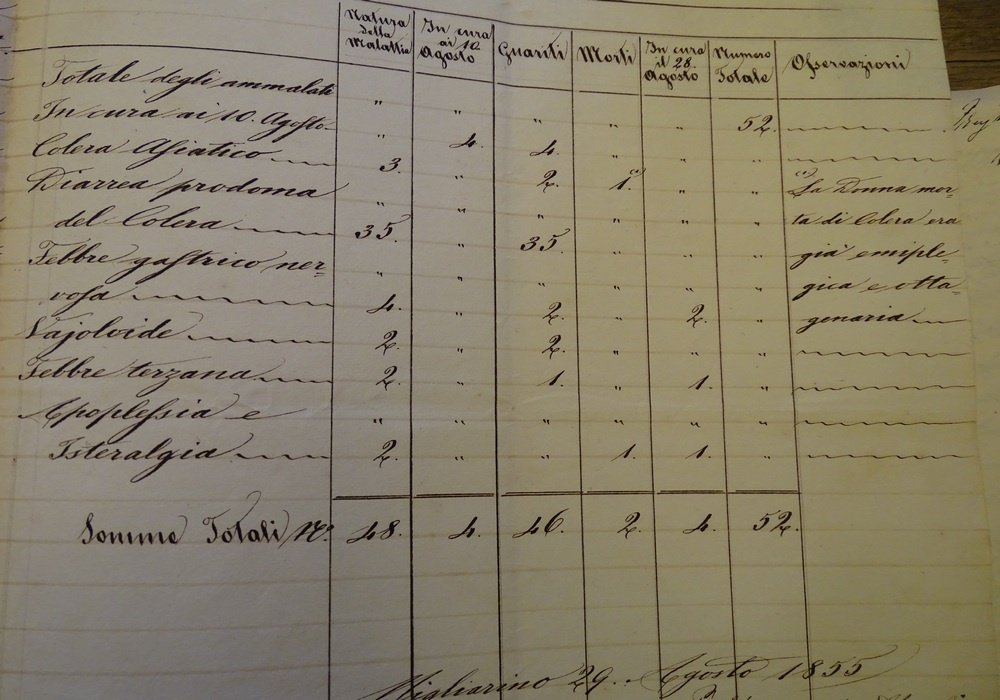 Natura della Malattia | In cura ai 10 Agosto | Guariti | Morti | In cura il 28. Agosto | Numero Totale | Osservazioni
Totale degli ammalati " " " " " 52.
In cura ai 10. Agosto " 4. 4. " " "
Colera Asiatico 3. " 2. (*) 1. " " (*) La Donna mor=
Diarrea prodoma " " " " " " ta di Colera era
del Colera 35. " 35. " " " già emiple=
Febbre gastrico ner= " " " " " " gica e otta=
vosa 4. " 2. " 2. " genaria
Vajoloide 2. " 2. " " "
Febbre terzana 2. " 1. " 1. "
Apoplessia e " " " " " "
Isteralgia 2. " " 1. 1. "
Somme Totali N.° 48. 4. 46. 2. 4. 52.
Migliarino 29. Agosto 1855